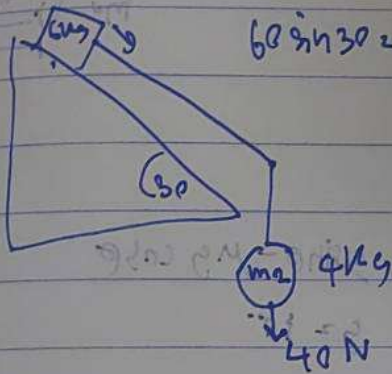 6kg
60 sin 30 =
(30
m2 4kg
40 N